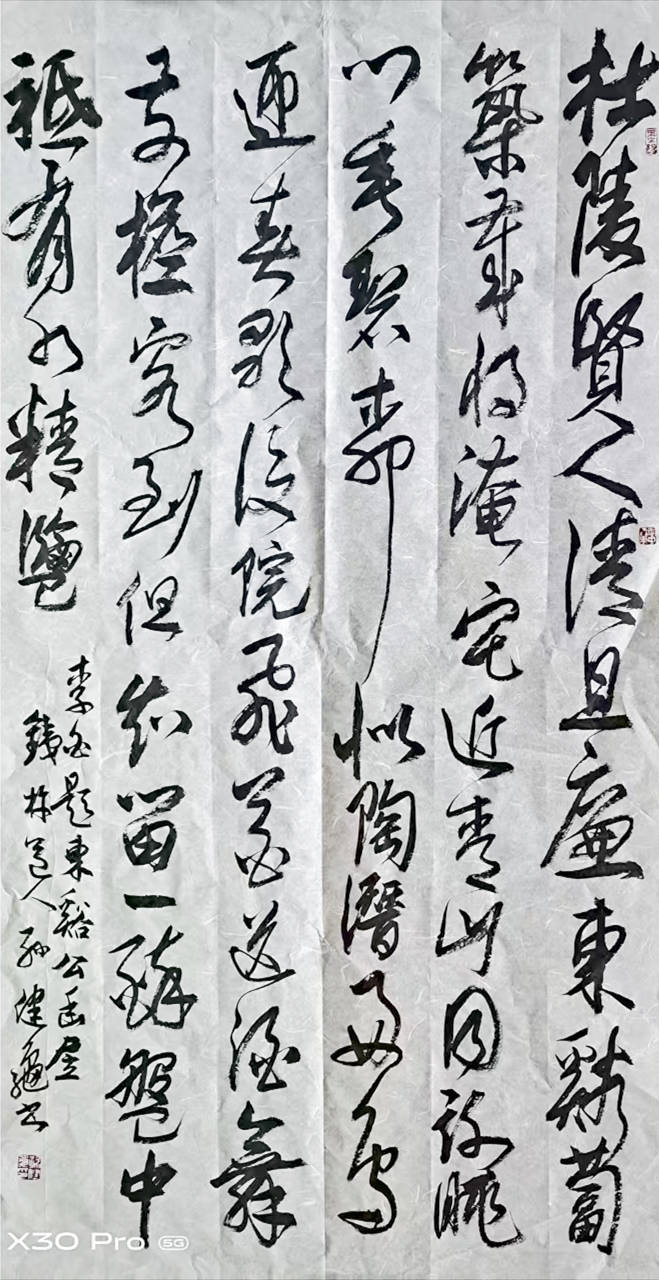 杜陵賢人清且廉東谿蔔
築歲將淹宅近青山同謝眺
門垂碧柳似陶潛好鳥
迎春歌後院飛花送酒舞
前檐客到但知留一醉盤中
祗有水精鹽
李白題東谿公幽居
道人孫健 书
X30 Pro 5G